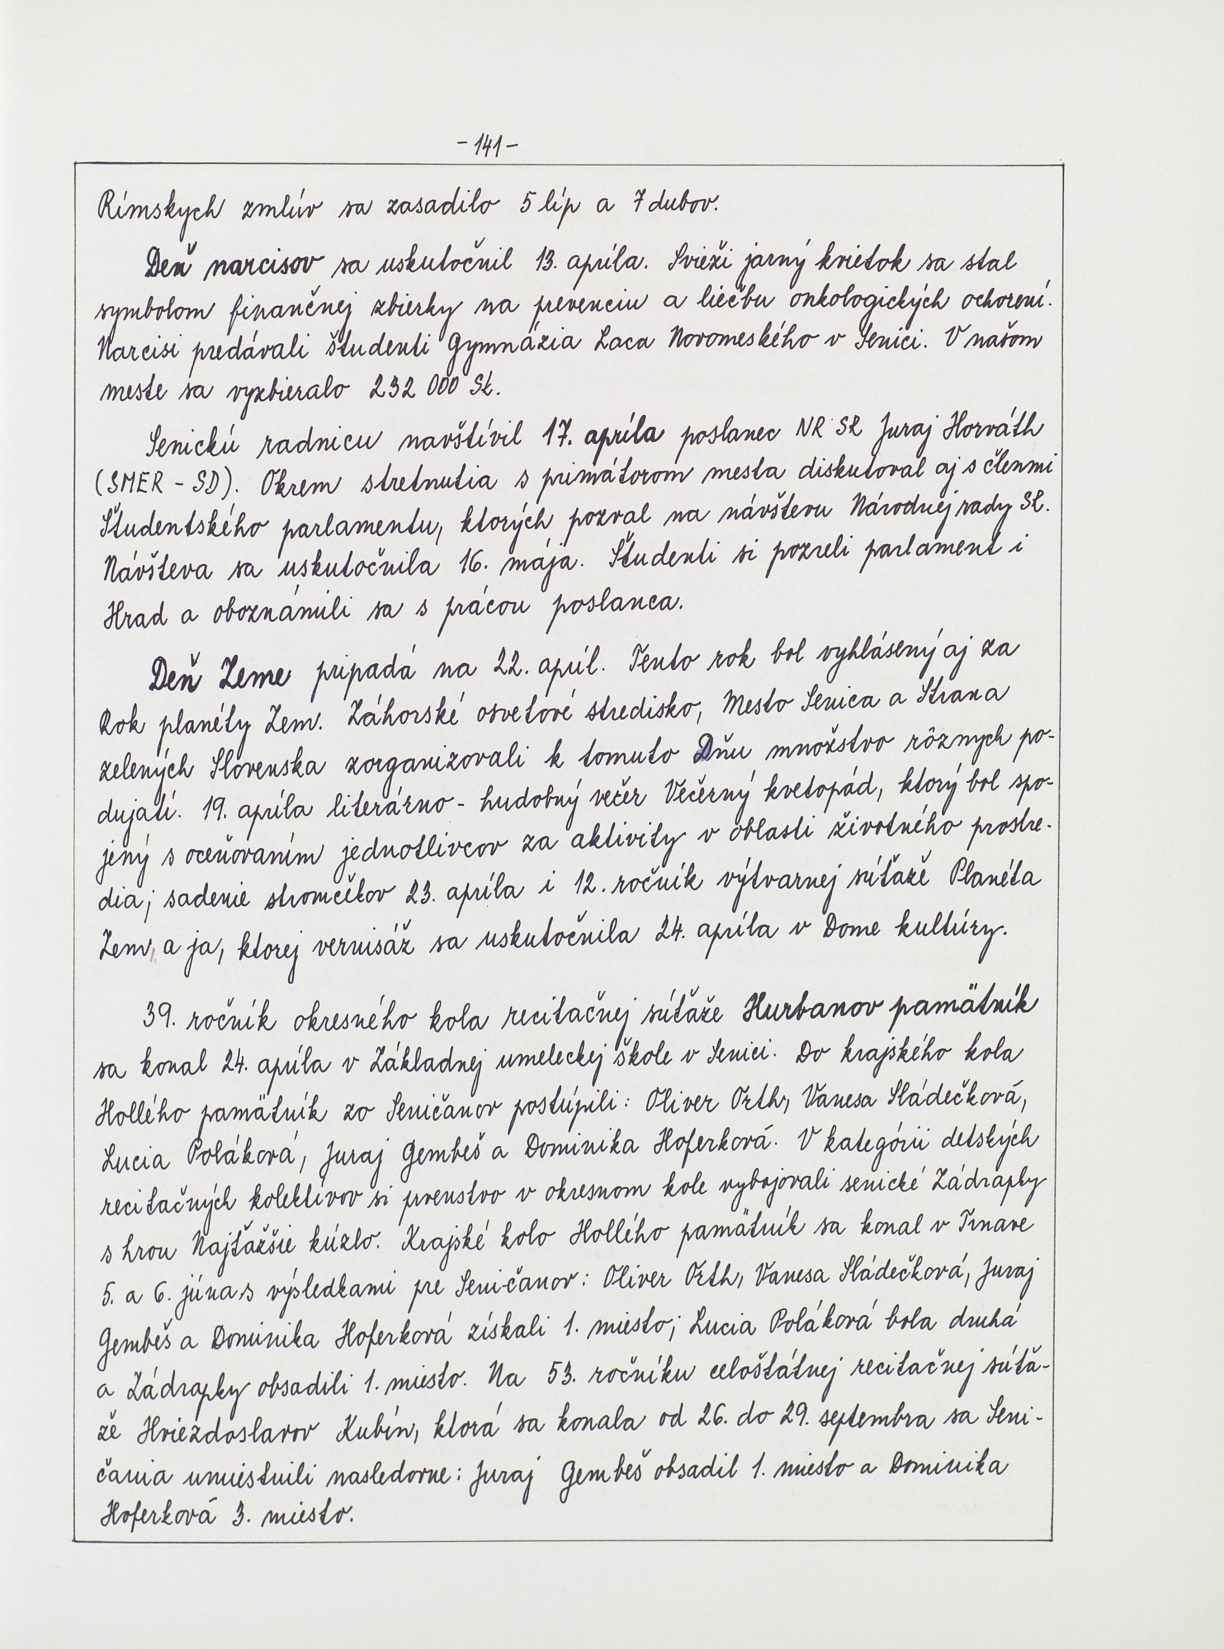 - 141 -
Rímskych zmlúv sa zasadilo 5 líp a 7 dubov.
Deň narcisov sa uskutočnil 13. apríla. Svieži jarný kvietok sa stal
symbolom finančnej zbierky na prevenciu a liečbu onkologických ochorení.
Narcisi predávali študenti Gymnázia Laca Novomeského v Senici. V našom
meste sa vyzbieralo 232 000 Sk.
Senickú radnicu navštívil 17. apríla poslanec NR SR Juraj Horváth
(SMER - SD). Okrem stretnutia s primátorom mesta diskutoval aj s členmi
Študentského parlamentu, ktorých pozval na návštevu Národnej rady SR.
Návšteva sa uskutočnila 16. mája. Študenti si pozreli parlament i
Hrad a oboznámili sa s prácou poslanca.
Deň Zeme pripadá na 22. apríl. Tento rok bol vyhlásený aj za
Rok planéty Zem. Záhorské osvetové stredisko, Mesto Senica a Strana
zelených Slovenska zorganizovali k tomuto Dňu množstvo rôznych po-
dujatí. 19. apríla literárno - hudobný večer Večerný kvetopád, ktorý bol spo-
jený s oceňovaním jednotlivcov za aktivity v oblasti životného prostre-
dia; sadenie stromčekov 23. apríla i 12. ročník výtvarnej súťaže Planéta
Zem, a ja, ktorej vernisáž sa uskutočnila 24. apríla v Dome kultúry.
39. ročník okresného kola recitačnej súťaže Hurbanov pamätník
sa konal 24. apríla v Základnej umeleckej škole v Senici. Do krajského kola
Hollého pamätník zo Seničanov postúpili: Oliver Orth, Vanesa Sládečková,
Lucia Poláková, Juraj Gembeš a Dominika Hoferková. V kategórii detských
recitačných kolektívov si prvenstvo v okresnom kole vybojovali senické Zádrapky
s hrou Najťažšie kúzlo. Krajské kolo Hollého pamätník sa konal v Trnave
5. a 6. júna s výsledkami pre Seničanov: Oliver Orth, Vanesa Sládečková, Juraj
Gembeš a Dominika Hoferková získali 1. miesto; Lucia Poláková bola druhá
a Zádrapky obsadili 1. miesto. Na 53. ročníku celoštátnej recitačnej súťa-
že Hviezdoslavov Kubín, ktorá sa konala od 26. do 29. septembra sa Seni-
čania umiestnili nasledovne: Juraj Gembeš obsadil 1. miesto a Dominika
Hoferková 3. miesto.